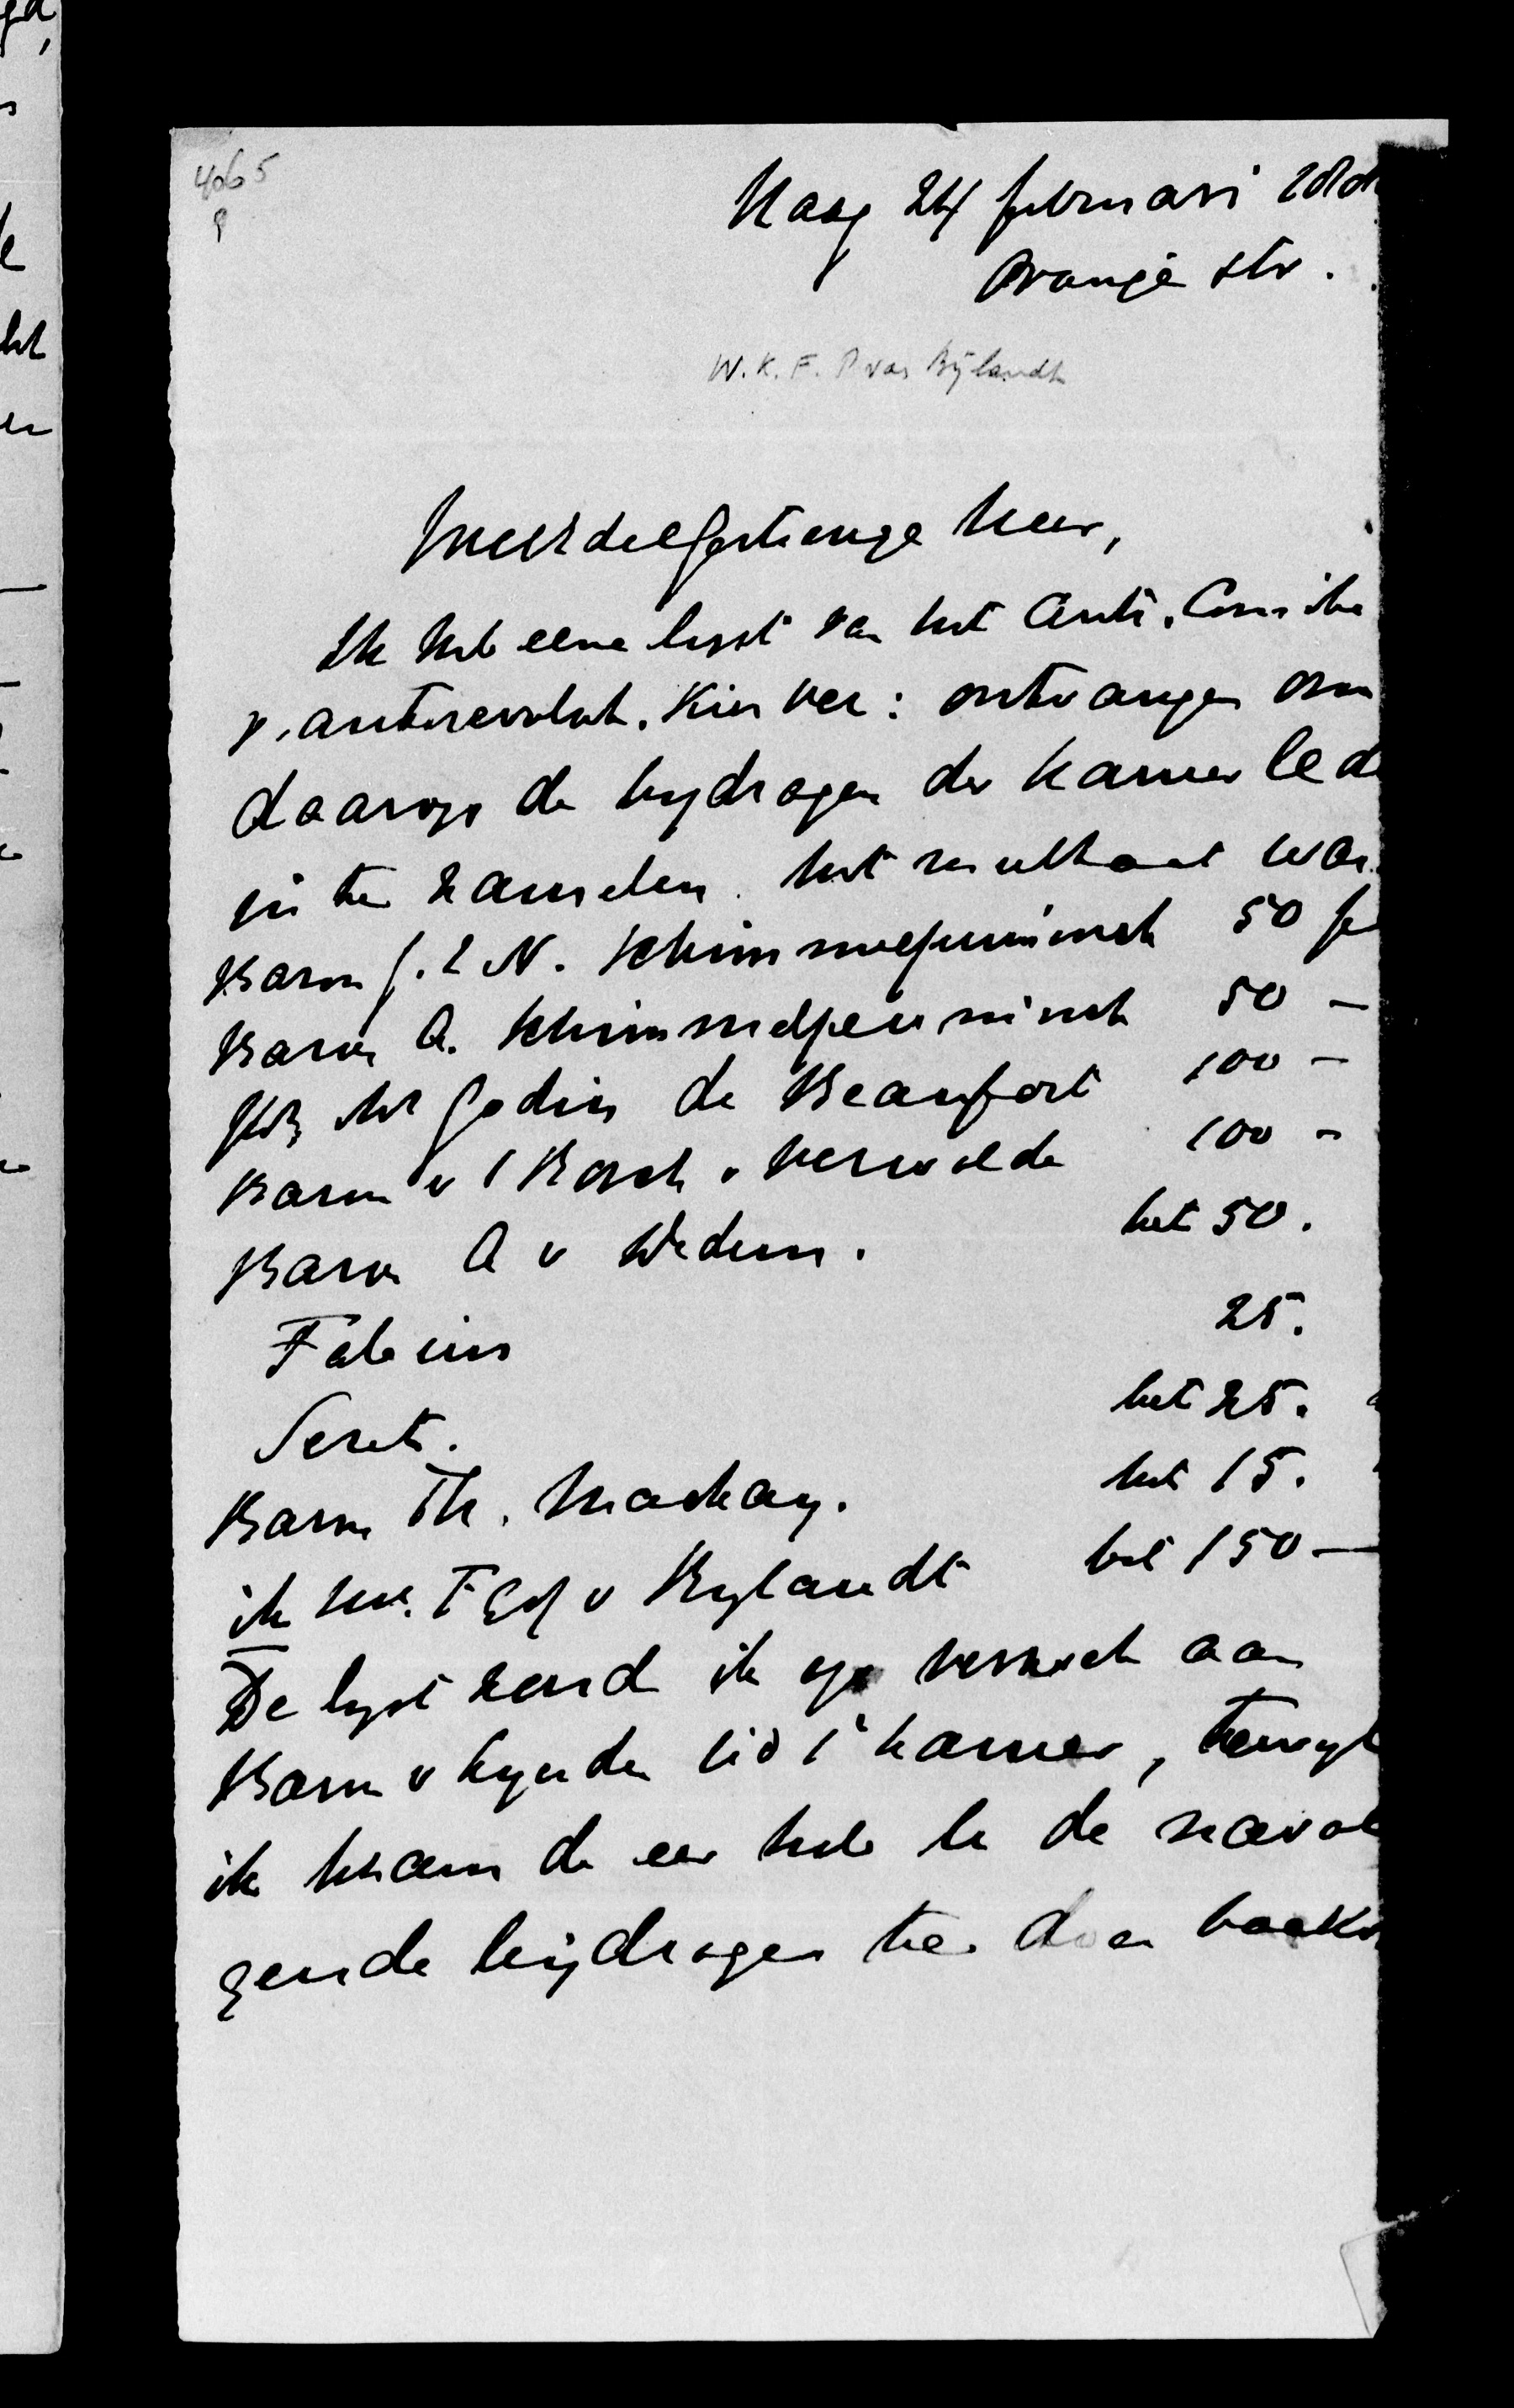 4065
9
Haag 24 februari 188
Oranje str.
W.K.F.P van Bijlandt
WelEdelGestrenge Heer,
Ik heb eene lijst van het Centr. Comite
v. antirevolut. Kies Ver: ontvangen om
daarop de bydragen der Kamer led
in te zamelen. het resultaat was
Baron J.E.N. Schimmelpenninck 50 f
Baron A. Schimmelpenninck 50 —
Jhr Mr Godin de Beaufort 100 —
Baron v d Bosch v Verwolde 100 —
Baron A v Dedem. bet 50.
Fabius 25.
Seret. bet 25.
Baron Th. Mackay. bet 15.
ik Mr. v Bylandt bet 150 —
De lyst zend ik op verzoek aan
Baron v Lynden lid 1e kamer, terwyl
ik kwam de eer heb U de navol
gende bijdragen te doen